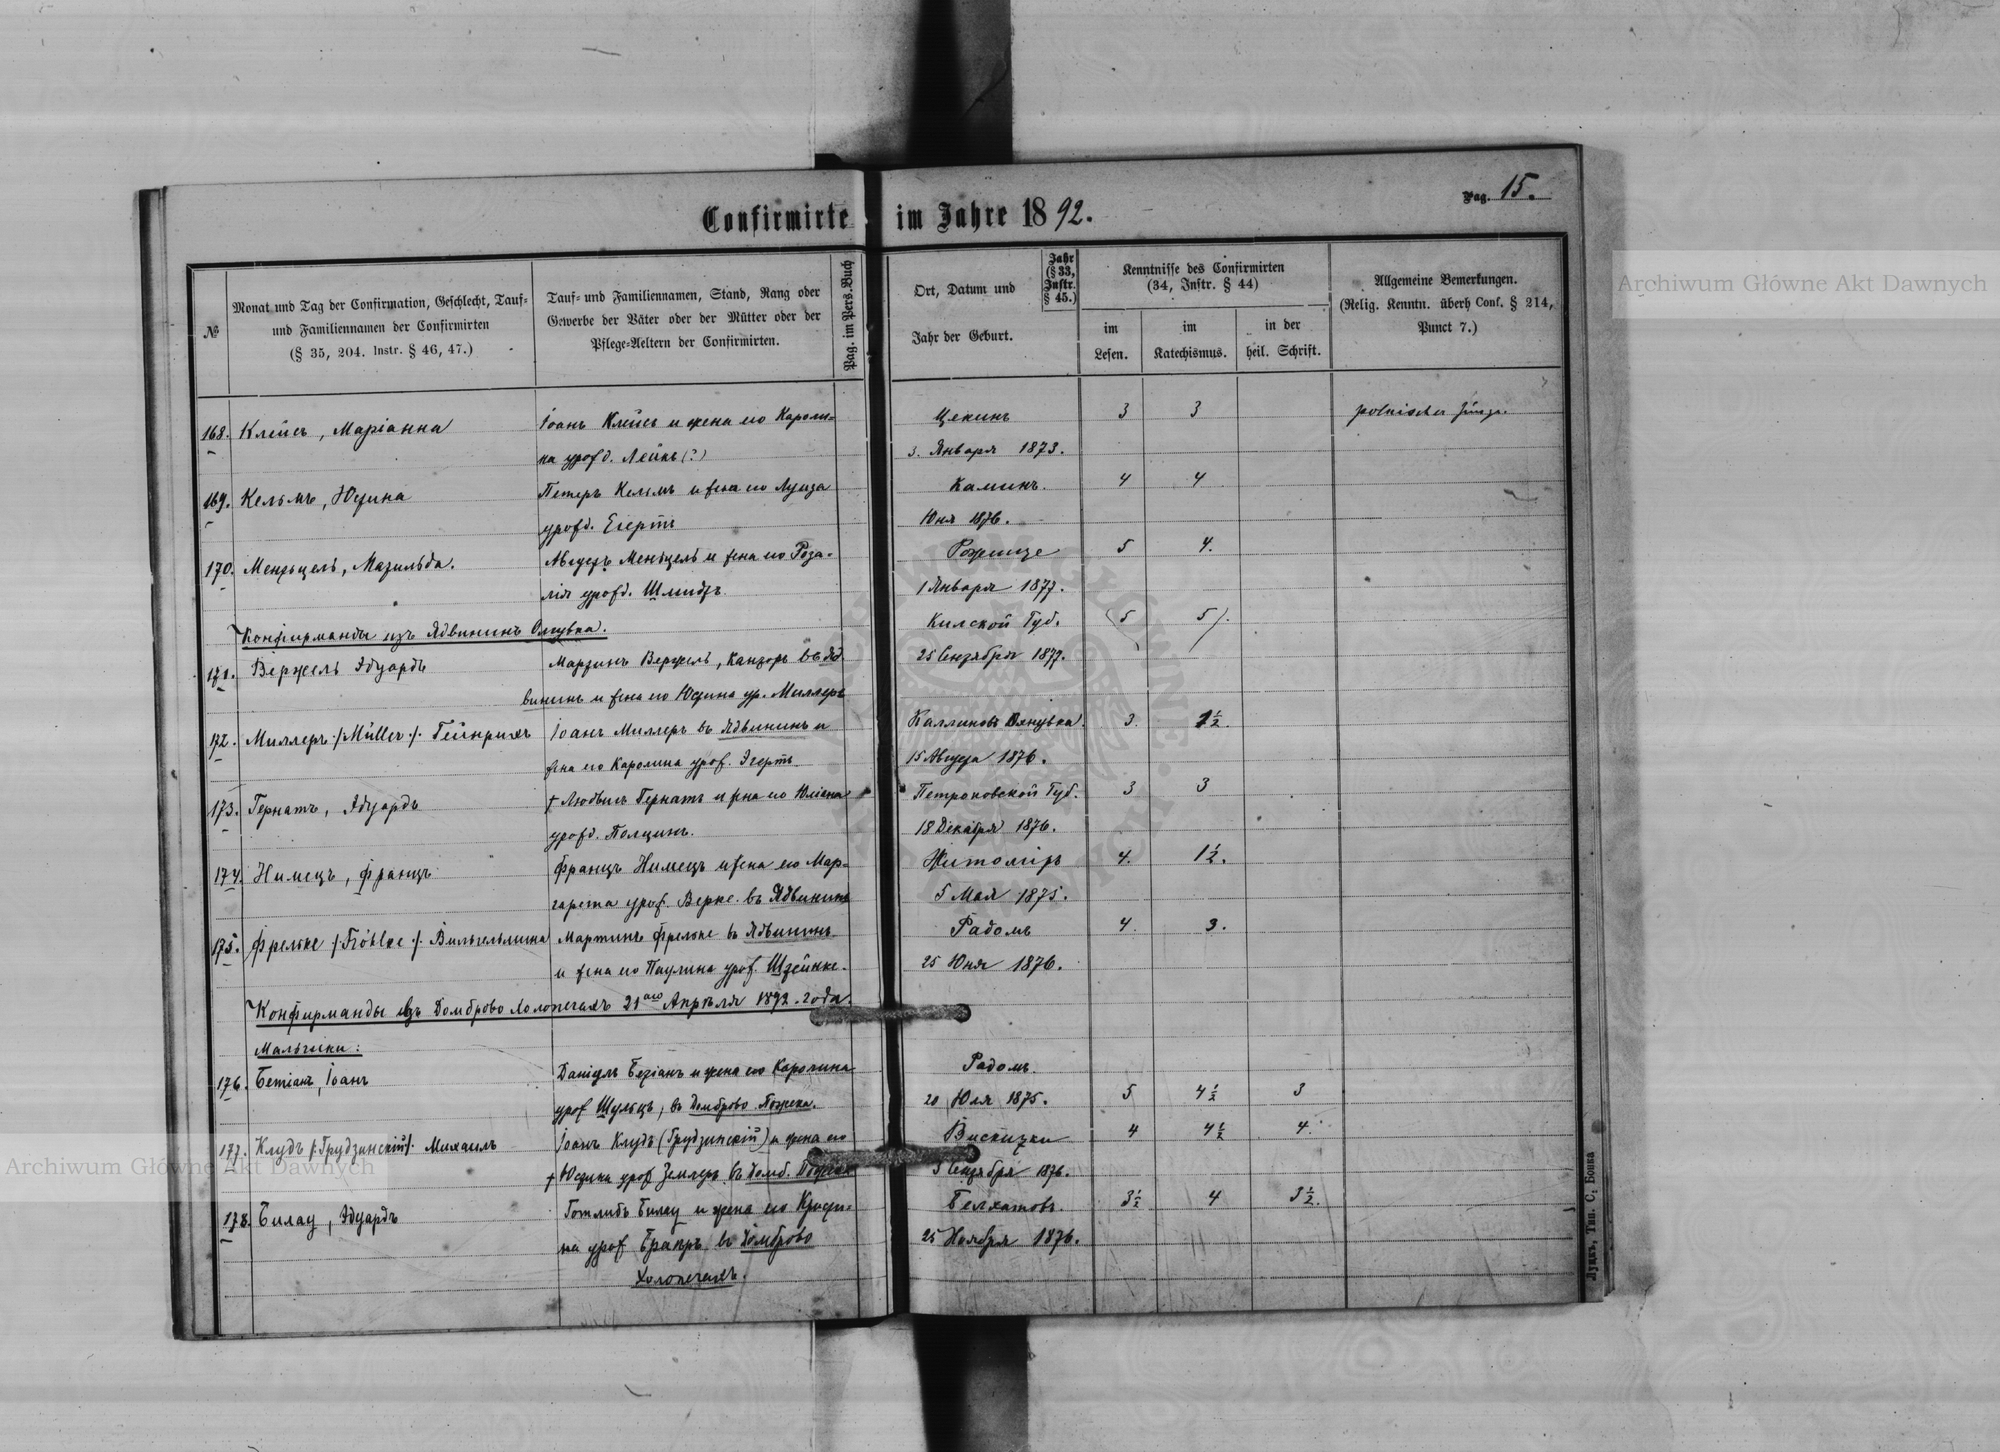 Confirmirte im Jahre 1892.
Pag. 15.
№
Monat und Tag der Confirmation, Geschlecht, Tauf-
und Familiennamen der Confirmirten
(§ 35, 204. Instr. § 46, 47.)
Tauf- und Familiennamen, Stand, Rang oder
Gewerbe der Väter oder der Mütter oder der
Pflege-Aeltern der Confirmirten.
Pag. im Pers.Buch
Ort, Datum und
Jahr der Geburt.
Jahr
(§ 33,
Instr.
§ 45.)
Kenntnisse des Confirmirten
(34, Instr. § 44)
im
Lesen.
im
Katechismus.
in der
heil. Schrift.
Allgemeine Bemerkungen.
(Relig. Kenntn. überh Conf. § 214,
Punct 7.)
168. Клейсъ, Маріанна Іоанъ Клейсъ и жена его Кароли= Цекинъ 3 3 polnischer
на урожд. Лейкъ (?) 3. Января 1873.
169. Кельмъ, Юстина Петеръ Кельмъ и жена его Луиза Каминъ. 4 4
урожд. Егертъ Юня 1876.
170. Менцель, Матильда. Августъ Менцель и жена его Роза= Рожище 5 4.
лія урожд. Шмидтъ 1 Января 1877.
Конфирманды изъ Ядвининъ
Килской Губ. (5 5).
171. Вержель Эдуардъ Мартинъ Вержель, Канторъ въ Яд 25 Сентября 1877.
вининъ и жена его Юстина ур. Миллеръ
172. Миллеръ /:Müller:/ Гейнрихъ Іоанъ Миллеръ въ Ядвининъ и 3. 1½
жена его Каролина урож. Эгертъ 15 Августа 1876.
173. Гернатъ, Эдуардъ † Людвигъ Гернатъ и жна его Юліана Петроковской Губ. 3 3
урожд. Полцинъ. 18 Декабря 1876.
174. Нимецъ, Францъ Францъ Нимецъ и жена его Мар= Житомiръ 4. 1½.
гарета урож. Верке. въ Ядвининъ 5 Мая 1875.
175. Фрельке /:Fröhlke:/ Вильгельмина Мартинъ Фрельке въ Ядвининъ Радомъ 4. 3.
и жена его Паулина урож. Штейнке. 25 Юня 1876.
Конфирманды изъ Домброво Холопечахъ 21аго Апрѣля 1892. года.
Мальчики:
176. Бетіанъ, Іоанъ Даніелъ Бетіанъ и жена его Каролина Радомъ.
урож Шульцъ, въ Домброво 20 Юля 1875. 5 4½ 3
177. Клудъ /:Грудзинскій:/ Михаилъ Іоанъ Клудъ (Грудзинскій) и жена его Вискитки 4 4½ 4.
† Юстина урож Землеръ въ Домб. 3 Сентября 1876.
178. Билау, Эдуардъ Готлибъ Билау и жена его Кристи= Белхатовъ. 3½ 4 3½.
на урож въ Домброво 25 Ноября 1876.
Холопечахъ.
Луцкъ, Тип. С. Бонка
Archiwum Główne Akt Dawnych
Archiwum Główne Akt Dawnych